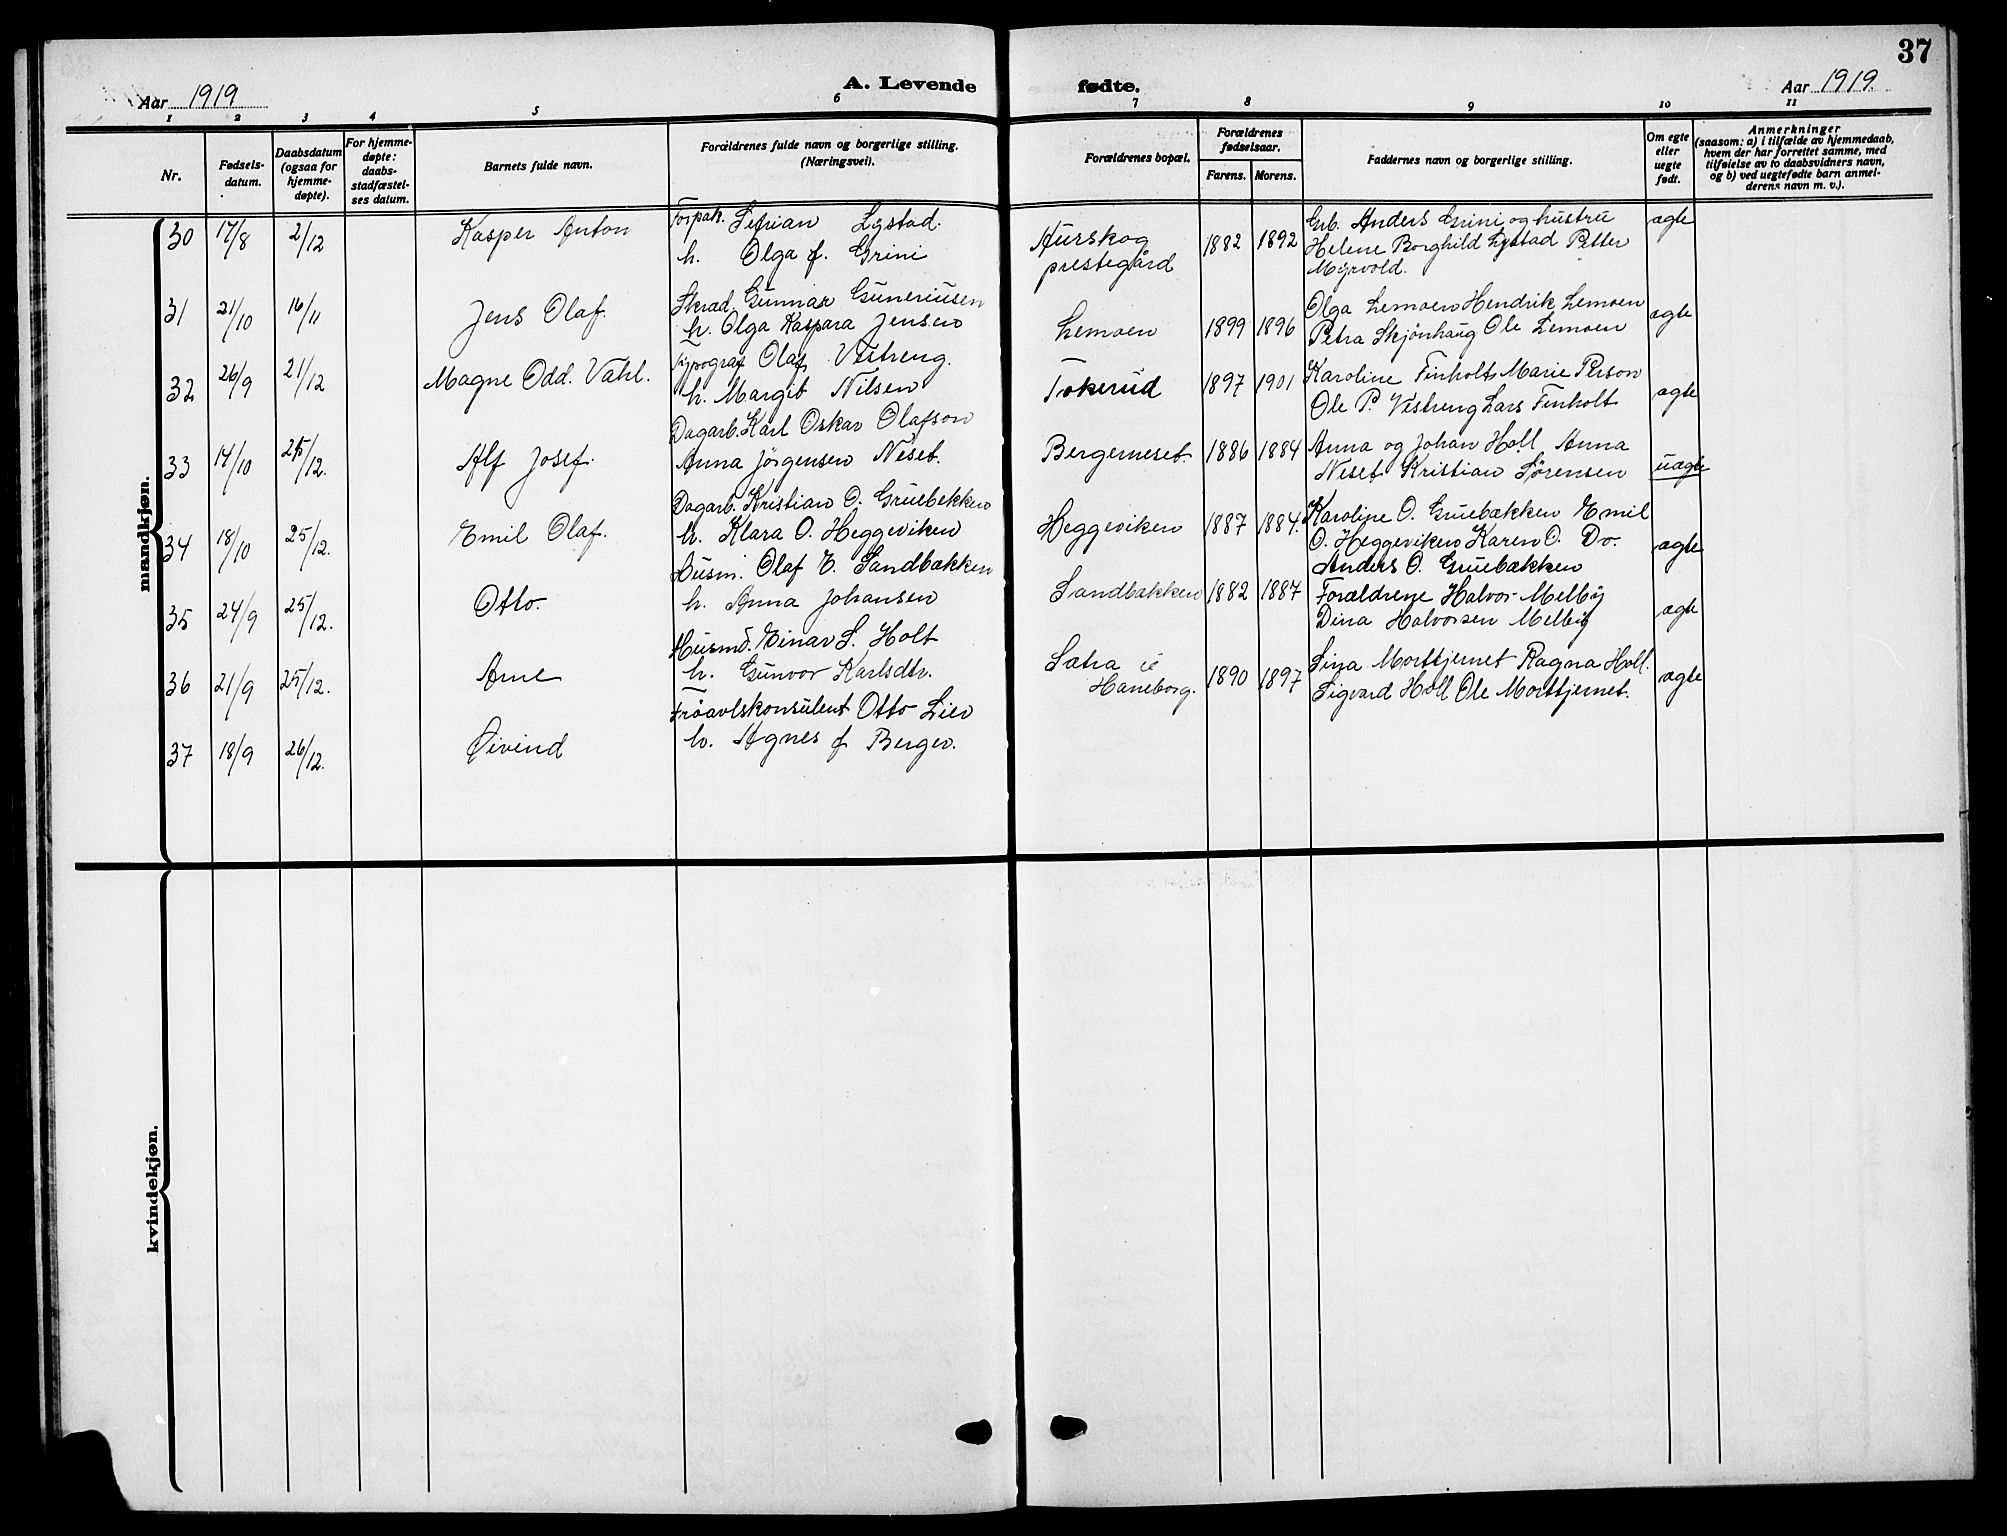 37
Aar 1919
A. Levende fødte.
Aar 1919.
1 2 3 4 5 6 7 8 9 10 11
Nr.
Fødsels-
datum.
Daabsdatum
(ogsaa for
hjemme-
døpte).
For hjemme-
døpte:
daabs-
stadfæstel-
ses datum.
Barnets fulde navn.
Forældrenes fulde navn og borgerlige stilling.
(Næringsvei).
Forældrenes bopæl.
Forældrenes
fødselsaar.
Farens. Morens.
Faddernes navn og borgerlige stilling.
Om egte
eller
uegte
født.
Anmerkninger
(saasom: a) i tilfælde av hjemmedaab,
hvem der har forrettet samme, med
tilføielse av to daabsvidners navn,
og b) ved uegtefødte barn anmel-
derens navn m. v.).
mandkjøn.
30 17/8 2/12 Kasper Anton
Forpak. Lystad.
h. Olga f. Grini
Aurskog
prestegård
1882 1892
Grb. Anders Grini og hustru
Helene Borghild Lystad Petter
Myrvold.
ægte
31 21/10 16/11 Jens Olaf.
Skrad. Gunnar Guneriusen
h. Olga Kaspara Jensen
Lemoen
1899 1896
Olga Lemoen Hendrik Lemoen
Petra Skjönhaug Ole Lemoen
ægte
32 26/9 21/12 Magne Odd. Vahl.
Typograf Olaf Vestreng.
h. Margit Nilsen
Tokerud
1897 1901
Karoline Finholt Marie Person
Ole P. Vestreng Lars Finholt
ægte
33 14/10 25/12. Alf Josef.
Dagarb. Karl Oskar Olafson
Anna Jörgensen Neset.
Bergerneset.
1886 1884
Anna og Johan Holl Anna
Neset Kristian Sørensen
uægte
34 18/10 25/12. Emil Olaf.
Dagarb. Kristian O. Gruebekken
h. Klara O. Heggeviken
Heggeviken
1887 1884.
Karoline O. Gruebækken Emil
O. Heggeviken Karen O. Do.
Anders O. Gruebækken
ægte
35 24/9 25/12. Otto.
Husm. Olaf E. Sandbækken
h. Anna Johansen
Sandbækken
1882 1887
Forældrene Halvor Melby
Dina Halvorsen Melby
ægte
36 21/9 25/12. Arne
Husmd. Einar S. Holt
h. Gunvor Karlsdtr.
Sætra i
Haneborg.
1890 1897
Lina Morttjernet Ragna Holl.
Sigvard Holl Ole Morttjernet.
ægte
37 18/9 26/12. Øivind
Fröavlskonsulent Otto Lier
h. Agnes f Berger.
kvindekjøn.